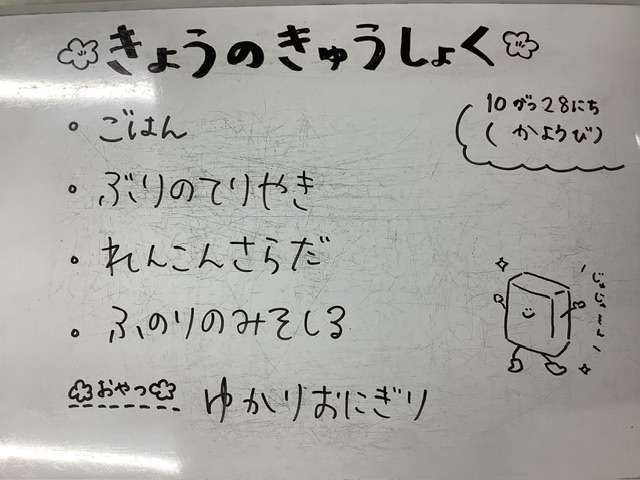 きょうのきゅうしょく
10がつ28にち
(かようび)
ごはん
ぶりのてりやき
れんこんさらだ
ふのりのみそしる
じゃじゃーん
おやつ
ゆかりおにぎり